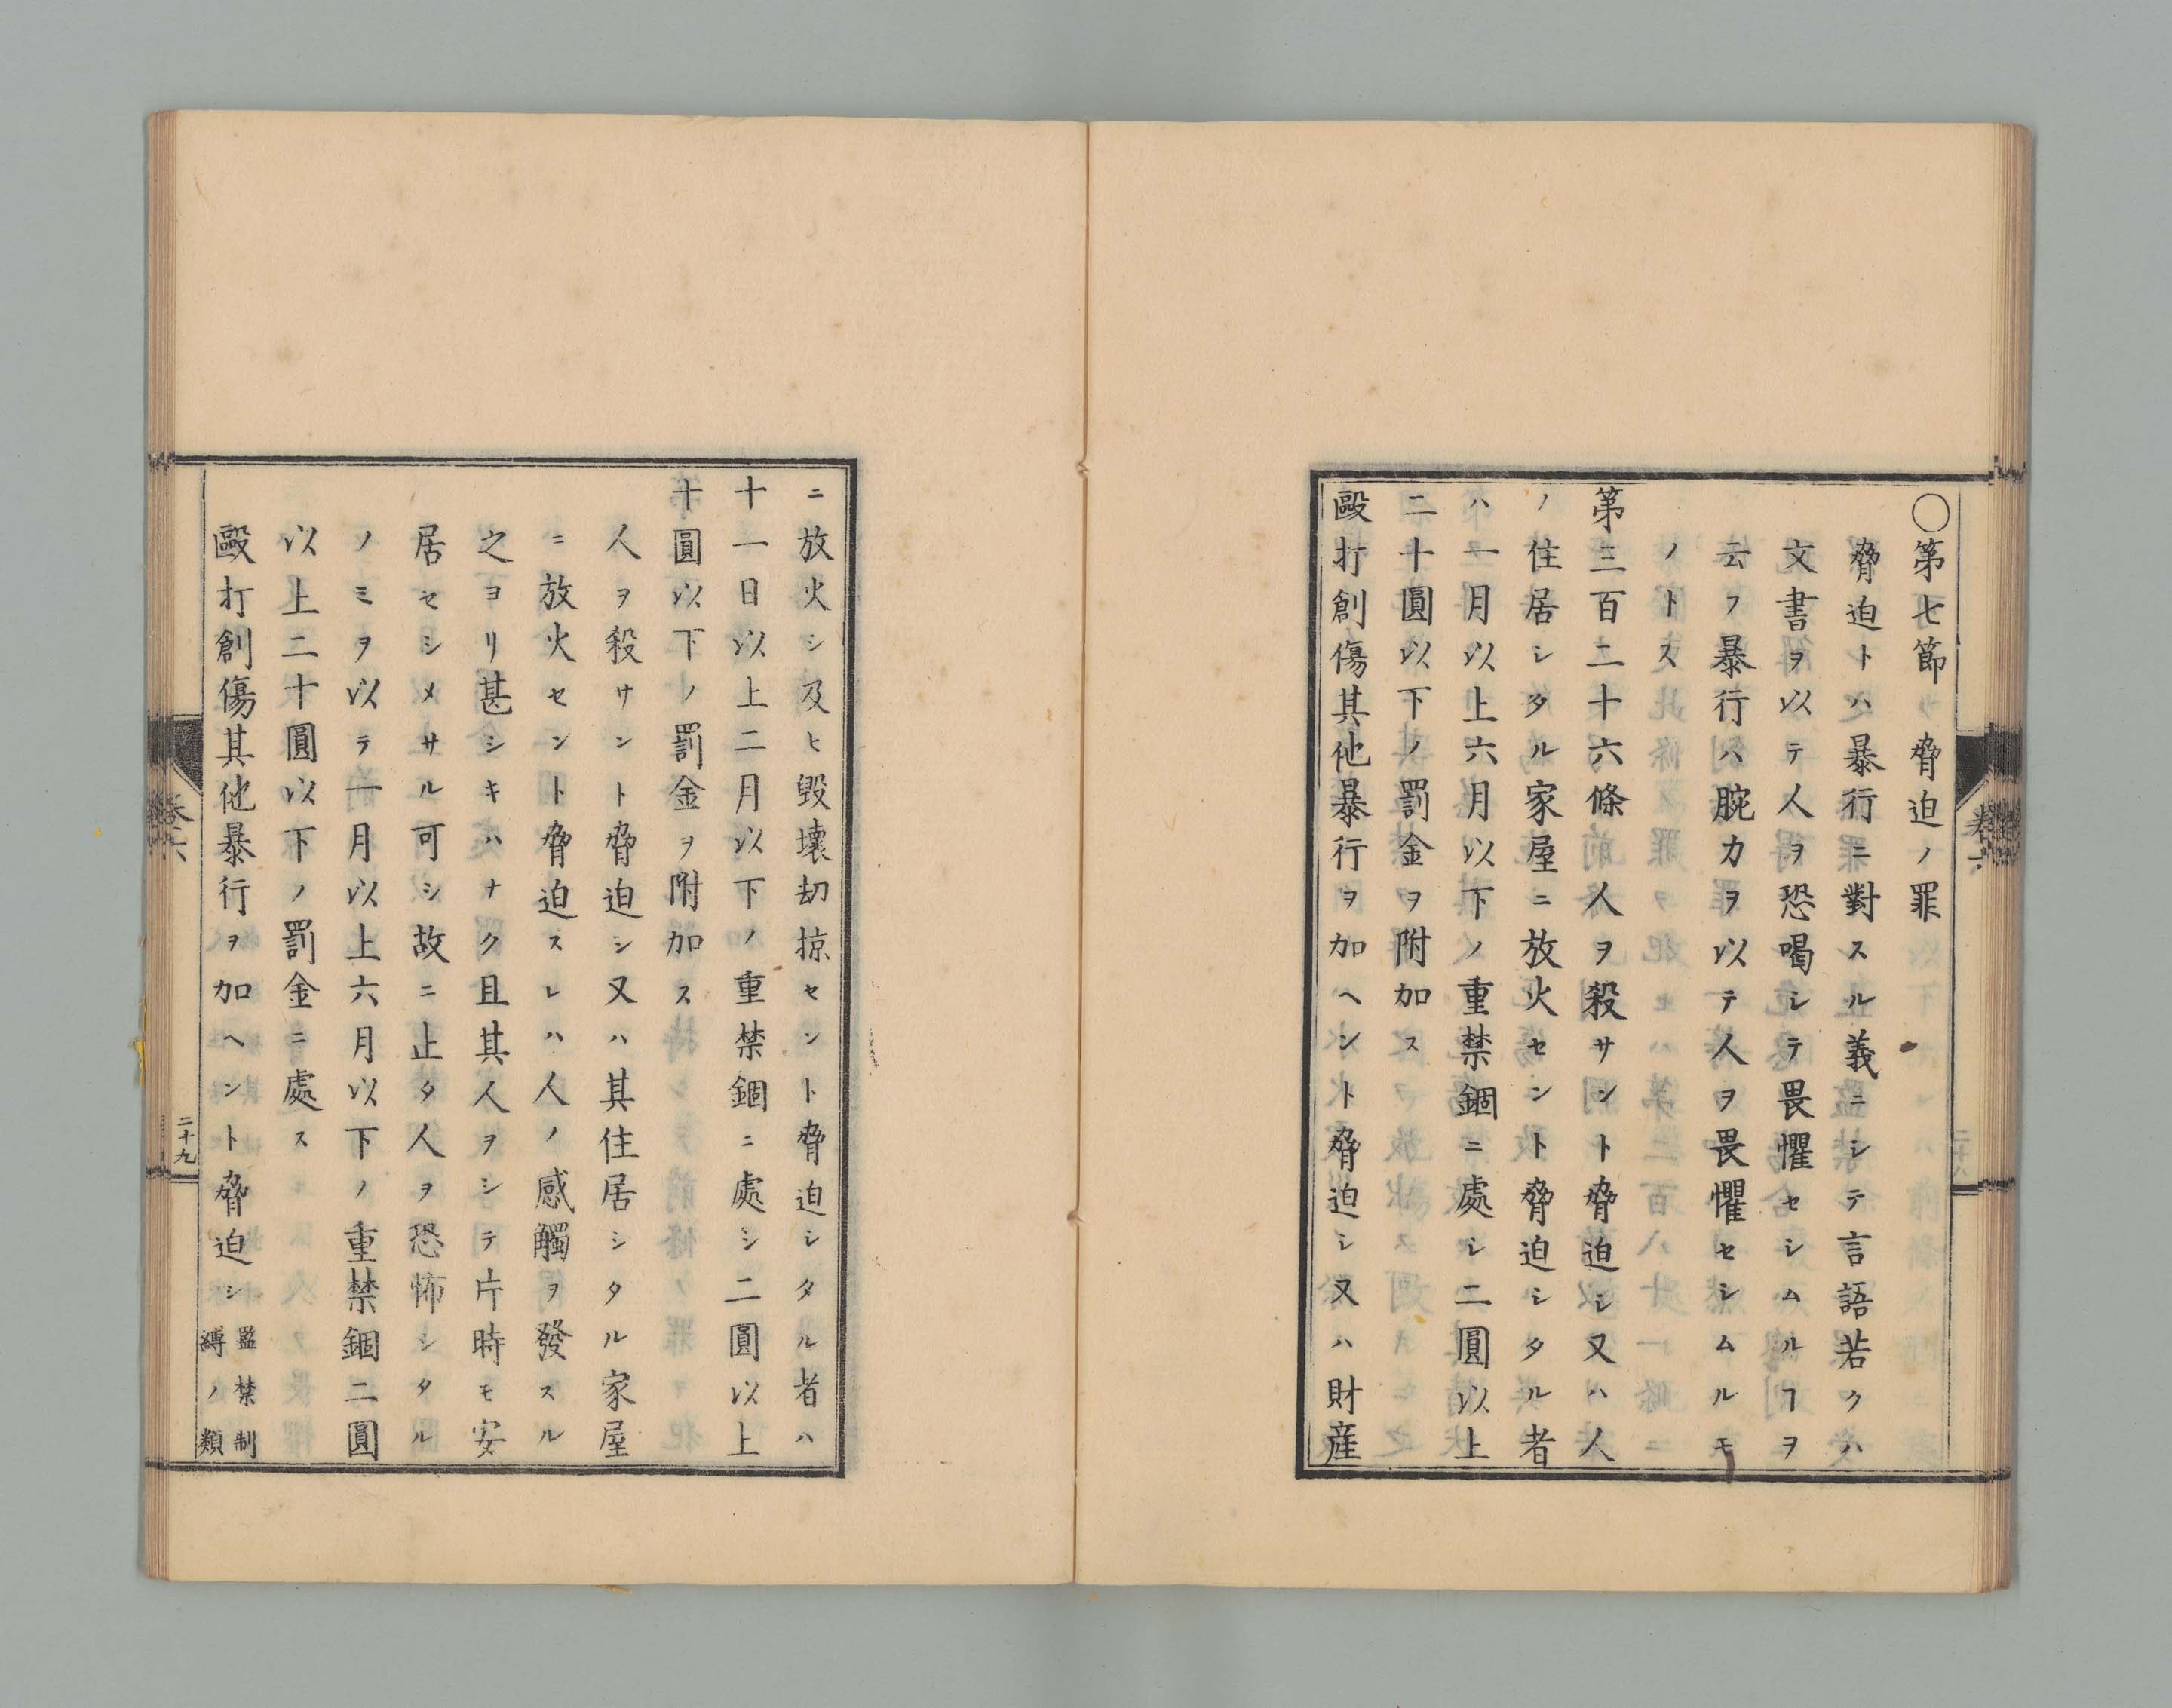 ○第七節　脅迫ノ罪
脅迫トハ暴行ニ對スル義ニシテ言語若クハ
文書ヲ以テ人ヲ恐喝シテ畏懼セシムルヿヲ
云フ暴行ハ腕力ヲ以テ人ヲ畏懼セシムルモ
ノトス
第三百二十六條　人ヲ殺サント脅迫シ又ハ人
ノ住居シタル家屋ニ放火セント脅迫シタル者
ハ一月以上六月以下ノ重禁錮ニ處シ二圓以上
二十圓以下ノ罰金ヲ附加ス
毆打創傷其他暴行ヲ加ヘント脅迫シ又ハ財産
ニ放火シ及ヒ毀壞刼掠セント脅迫シタル者ハ
十一日以上二月以下ノ重禁錮ニ處シ二圓以上
十圓以下ノ罰金ヲ附加ス
人ヲ殺サント脅迫シ又ハ其住居シタル家屋
ニ放火セント脅迫スレハ人ノ感觸ヲ發スル
之ヨリ甚シキハナク且其人ヲシテ片時モ安
居セシメサル可シ故ニ止タ人ヲ恐怖シタル
ノミヲ以テ一月以上六月以下ノ重禁錮二圓
以上二十圓以下ノ罰金ニ處ス
毆打創傷其他暴行ヲ加ヘント脅迫シ監禁制縛ノ類
卷六
二十九